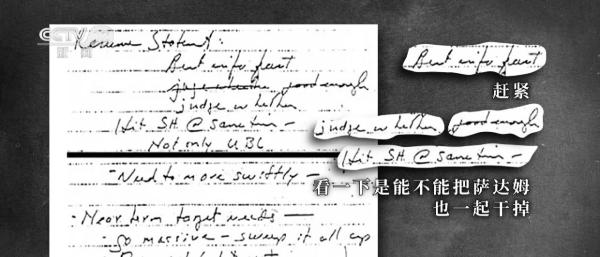 CCTV
新闻
Resume Statent:
Best info fast
judge whether good enough
judge whether
Hit SH @ same time -
Not only UBL
- Need to move swiftly -
- Near term target needs -
- go massive - sweep it all up
Best info fast
赶紧
judge whether good enough
Hit SH @ same time -
看一下是能不能把萨达姆
也一起干掉